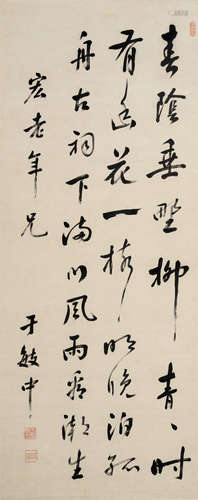 春陰垂野柳青〻時
有幽花一樹明晚泊孤
舟古祠下滿川風雨看潮生
宏老年兄
于敏中